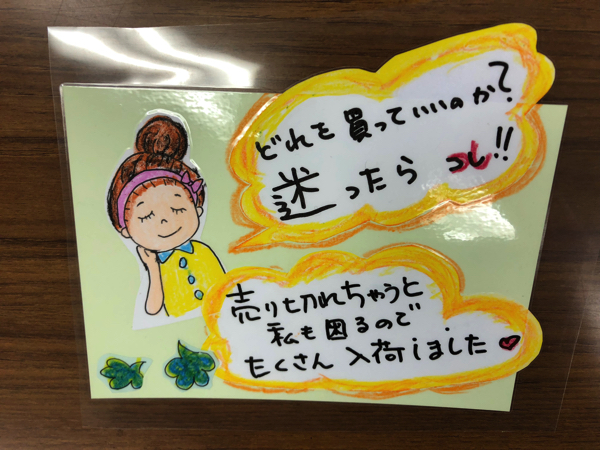 どれを買っていいのか?
迷ったらコレ!!
売り切れちゃうと
私も困るので
たくさん入荷しました